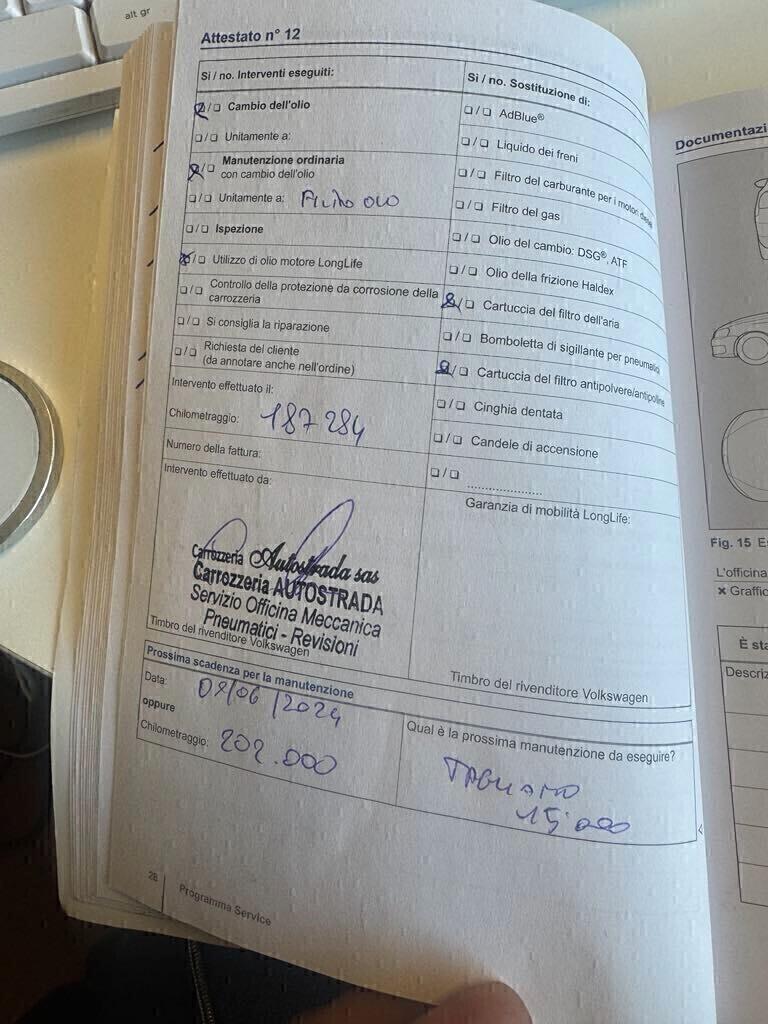 alt gr
Attestato n° 12
Si / no. Interventi eseguiti:
❏ / ❏ Cambio dell'olio
❏ / ❏ Unitamente a:
❏ / ❏ Manutenzione ordinaria
con cambio dell'olio
❏ / ❏ Unitamente a: Filtro olio
❏ / ❏ Ispezione
❏ / ❏ Utilizzo di olio motore LongLife
❏ / ❏ Controllo della protezione da corrosione della
carrozzeria
❏ / ❏ Si consiglia la riparazione
❏ / ❏ Richiesta del cliente
(da annotare anche nell'ordine)
Intervento effettuato il:
Chilometraggio: 187 284
Numero della fattura:
Intervento effettuato da:
Carrozzeria Autostrada sas
Carrozzeria AUTOSTRADA
Servizio Officina Meccanica
Pneumatici - Revisioni
Timbro del rivenditore Volkswagen
Si / no. Sostituzione di:
❏ / ❏ AdBlue®
❏ / ❏ Liquido dei freni
❏ / ❏ Filtro del carburante per i motori diesel
❏ / ❏ Filtro del gas
❏ / ❏ Olio del cambio: DSG®, ATF
❏ / ❏ Olio della frizione Haldex
❏ / ❏ Cartuccia del filtro dell'aria
❏ / ❏ Bomboletta di sigillante per pneumatici
❏ / ❏ Cartuccia del filtro antipolvere/antipolline
❏ / ❏ Cinghia dentata
❏ / ❏ Candele di accensione
❏ / ❏ ......................
Garanzia di mobilità LongLife:
Timbro del rivenditore Volkswagen
Prossima scadenza per la manutenzione
Data: /06/2024
oppure
Chilometraggio: 202.000
Qual è la prossima manutenzione da eseguire?
TAGLIANDO
15.000
28 Programma Service
Documentazi
Fig. 15 Es
L'officina
✖ Graffic
È sta
Descriz